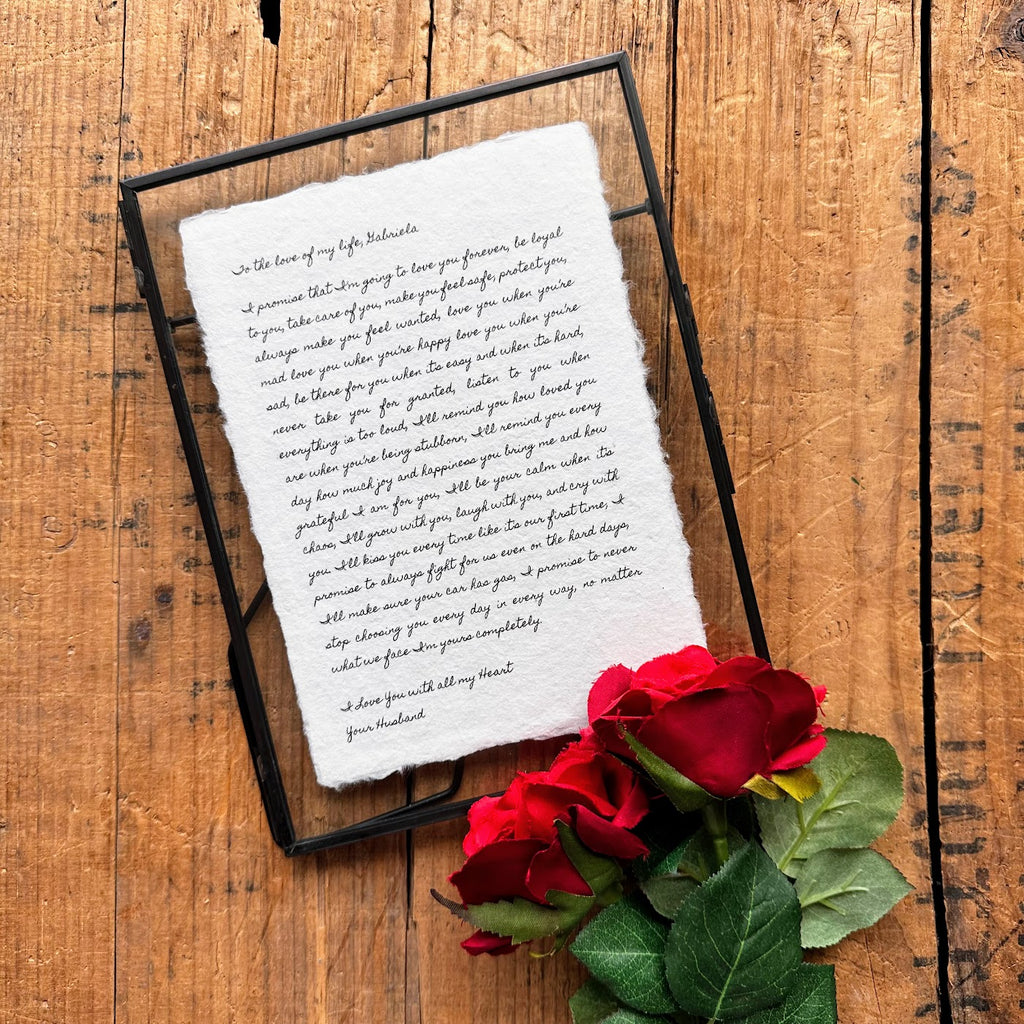 To the love of my life, Gabriela
I promise that I'm going to love you forever, be loyal
to you, take care of you, make you feel safe, protect you,
always make you feel wanted, love you when you're
mad love you when you're happy love you when you're
sad, be there for you when it's easy and when it's hard,
never take you for granted, listen to you when
everything is too loud, I'll remind you how loved you
are when you're being stubborn, I'll remind you every
day how much joy and happiness you bring me and how
grateful I am for you, I'll be your calm when it's
chaos, I'll grow with you, laugh with you, and cry with
you. I'll kiss you every time like it's our first time, I
promise to always fight for us even on the hard days,
I'll make sure your car has gas, I promise to never
stop choosing you every day in every way, no matter
what we face I'm yours completely.
I Love You with all my Heart
Your Husband